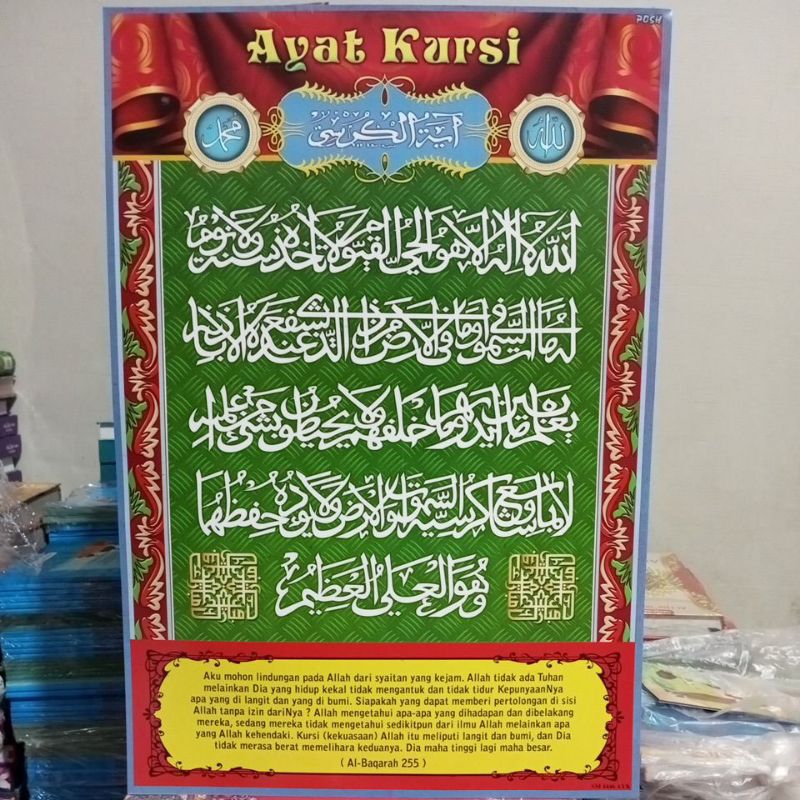 POSH
Ayat Kursi
محمد
آية الكرسي
الله
الله لا إله إلا هو الحي القيوم لا تأخذه سنة ولا نوم
له ما في السموات وما في الأرض من ذا الذي يشفع عنده إلا بإذنه
يعلم ما بين أيديهم وما خلفهم ولا يحيطون بشيء من علمه
إلا بما شاء وسع كرسيه السموات والأرض ولا يؤده حفظهما
وهو العلي العظيم
Aku mohon lindungan pada Allah dari syaitan yang kejam. Allah tidak ada Tuhan
melainkan Dia yang hidup kekal tidak mengantuk dan tidak tidur KepunyaanNya
apa yang di langit dan yang di bumi. Siapakah yang dapat memberi pertolongan di sisi
Allah tanpa izin dariNya ? Allah mengetahui apa-apa yang dihadapan dan dibelakang
mereka, sedang mereka tidak mengetahui sedikitpun dari ilmu Allah melainkan apa
yang Allah kehendaki. Kursi (kekuasaan) Allah itu meliputi langit dan bumi, dan Dia
tidak merasa berat memelihara keduanya. Dia maha tinggi lagi maha besar.
( Al-Baqarah 255 )